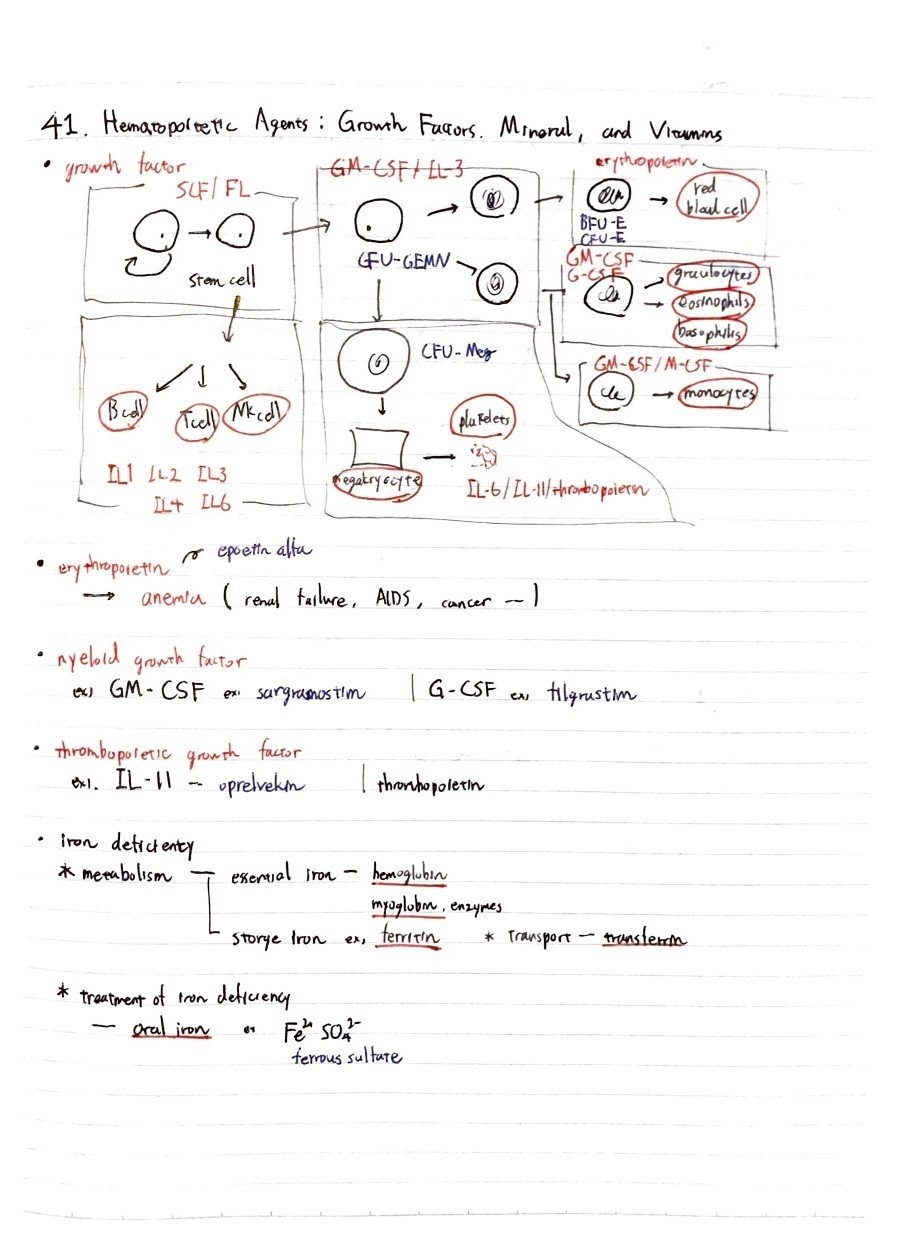 41. Hematopoietic Agents: Growth Factors. Mineral, and Vitamins
• growth factor
SCF/FL
stem cell
GM-CSF/IL-3
CFU-GEMN
erythropoietin
BFU-E
CFU-E
red
blood cell
GM-CSF
G-CSF
granulocytes
eosinophils
basophils
GM-CSF/M-CSF
monocytes
B cell
T cell
NK cell
IL1 IL2 IL3
IL4 IL6
CFU-Meg
megakryocyte
platelets
IL-6/IL-11/thrombopoietin
• erythropoietin epoetin alfa
→ anemia ( renal failure, AIDS, cancer ---)
• myeloid growth factor
ex) GM-CSF ex. sargramostim | G-CSF ex, filgrastim
• thrombopoietic growth factor
ex). IL-11 – oprelvekin | thrombopoietin
• iron deficienty
* metabolism — essential iron – hemoglobin
myoglobin, enzymes
storge iron ex, ferritin * transport – transferrin
* treatment of iron deficiency
— oral iron ex Fe²⁺ SO₄²⁻
ferrous sulfate